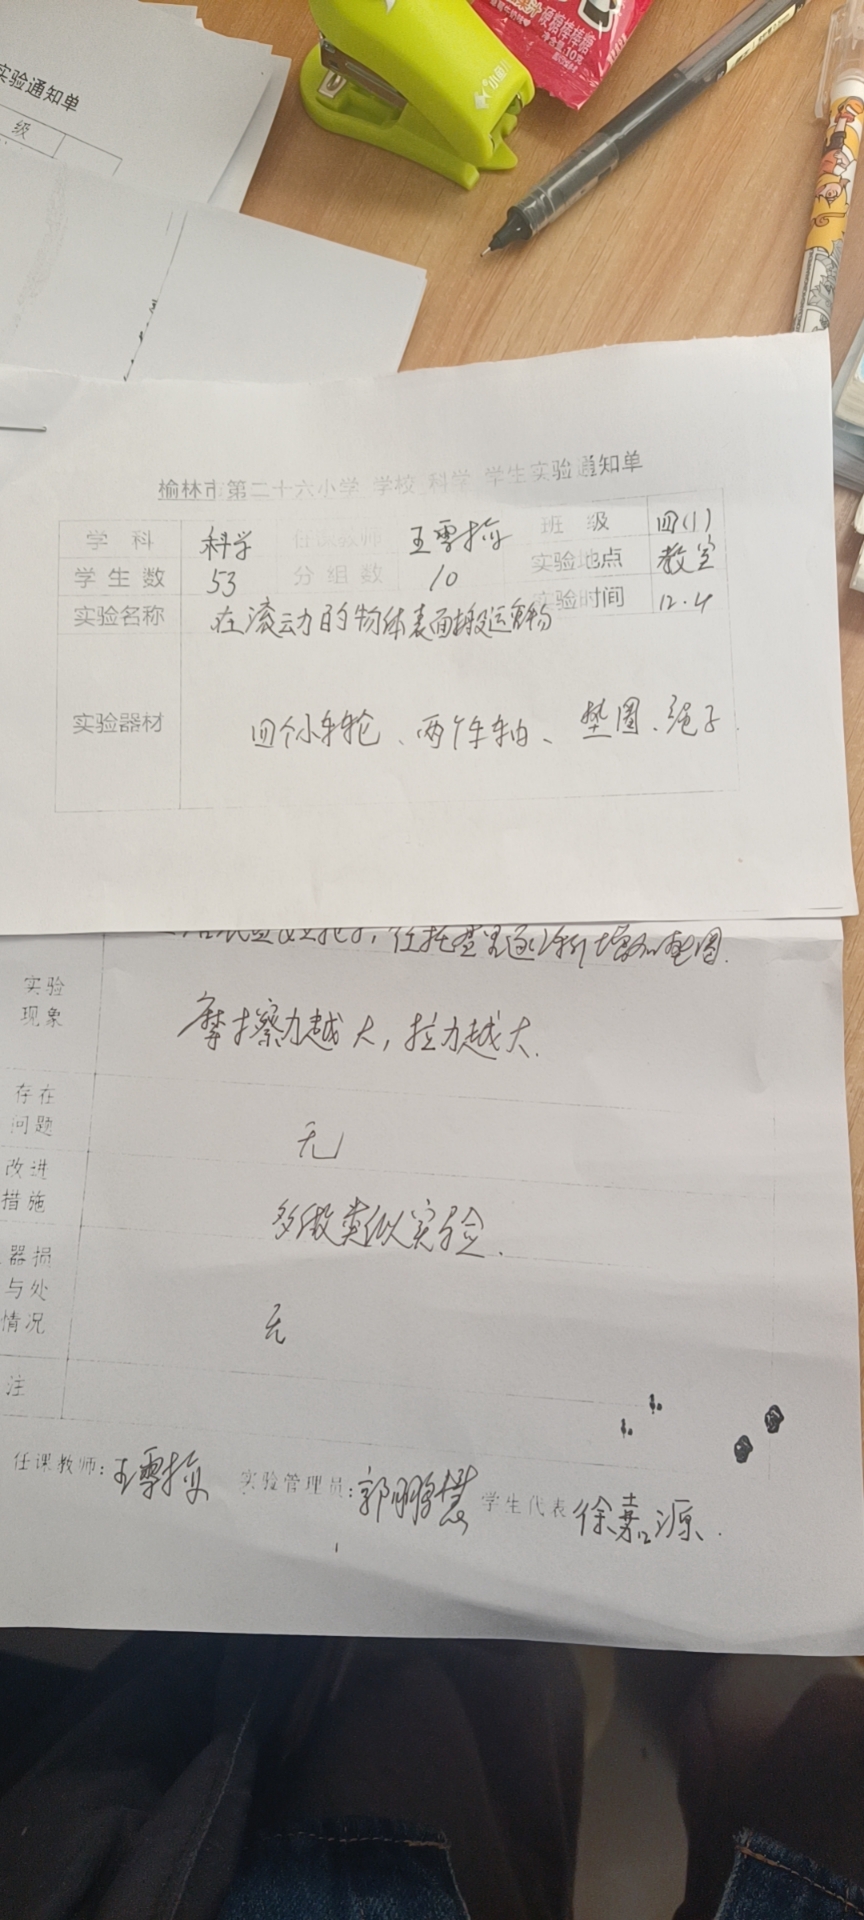 实验通知单
级
硬糖棒棒糖
榆林市第二十六小学 学校 科学 学生实验通知单
学科 科学 任课教师 王雪梅 班级 四(1)
学生数 53 分组数 10 实验地点 教室
实验名称 在滚动的物体表面搬运重物 实验时间 12.4
实验器材 四个小车轮、两个车轴、垫圈、绳子.
逐渐增加垫圈.
实验
现象 摩擦力越大,拉力越大.
存在
问题 无
改进
措施 多做类似实验.
器损
与处
情况 无
注
任课教师: 王雪梅 实验管理员: 郭鹏慧 学生代表 徐嘉源.